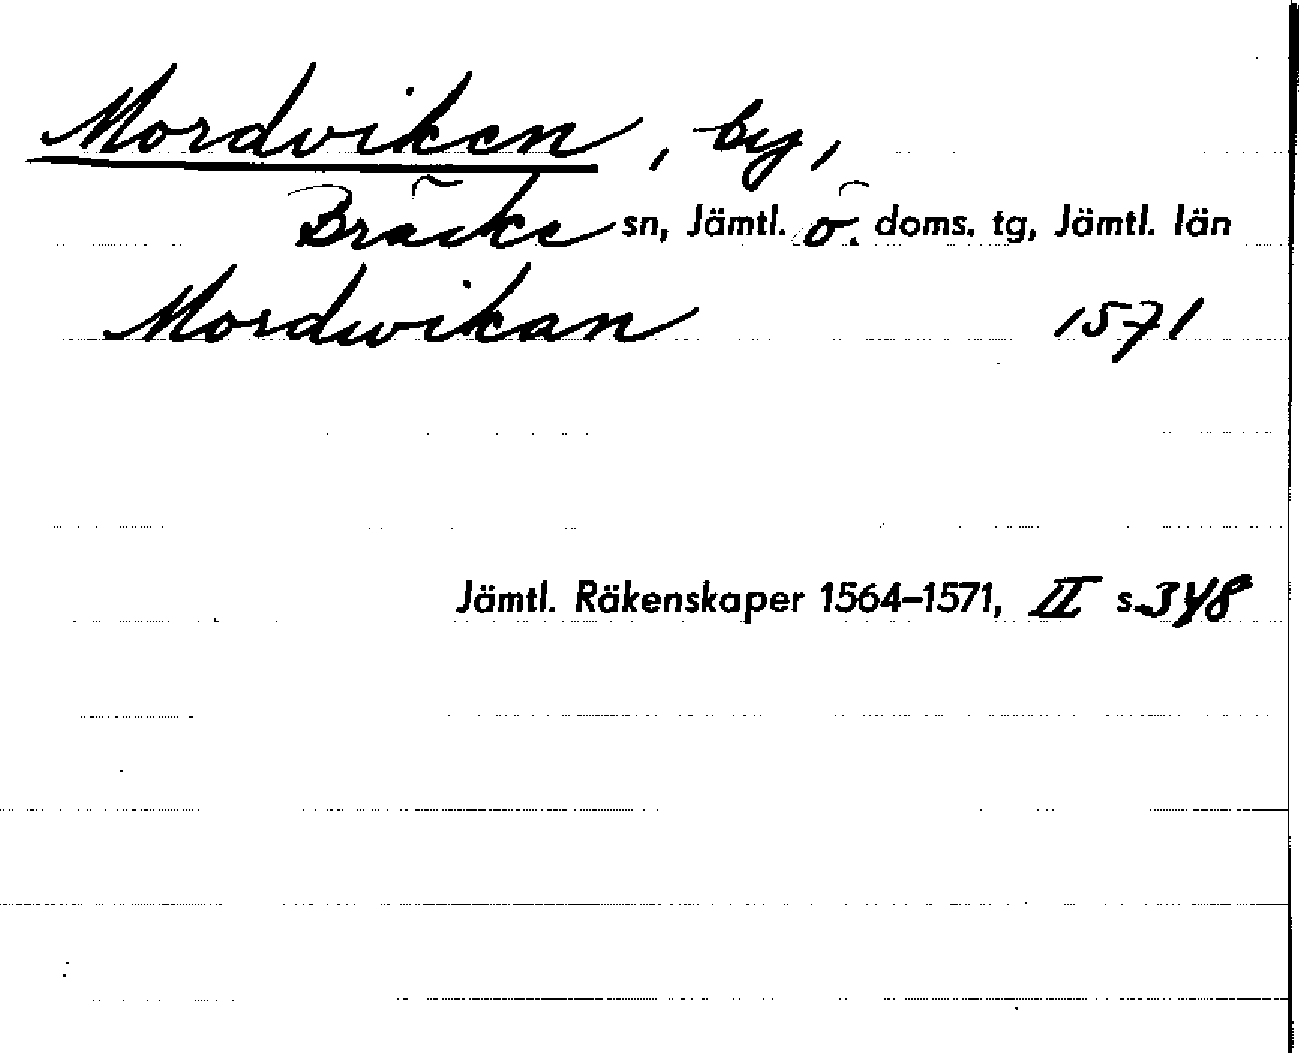 Mordviken, by,
Bräcke sn, Jämtl. ö. doms. tg, Jämtl. län
Mordwikan 1571
Jämtl. Räkenskaper 1564–1571, II s. 348